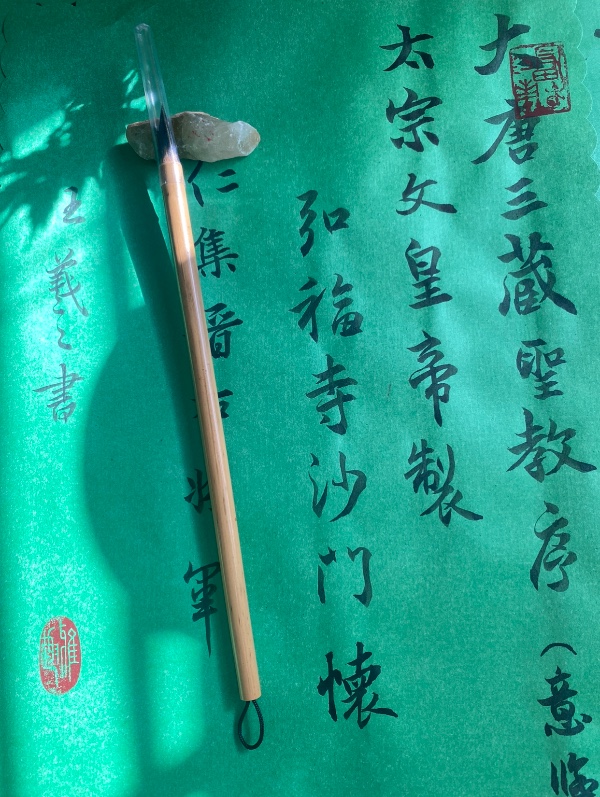 大唐三藏聖教序（意臨
太宗文皇帝製
弘福寺沙門懷
仁集晉右將軍
王羲之書